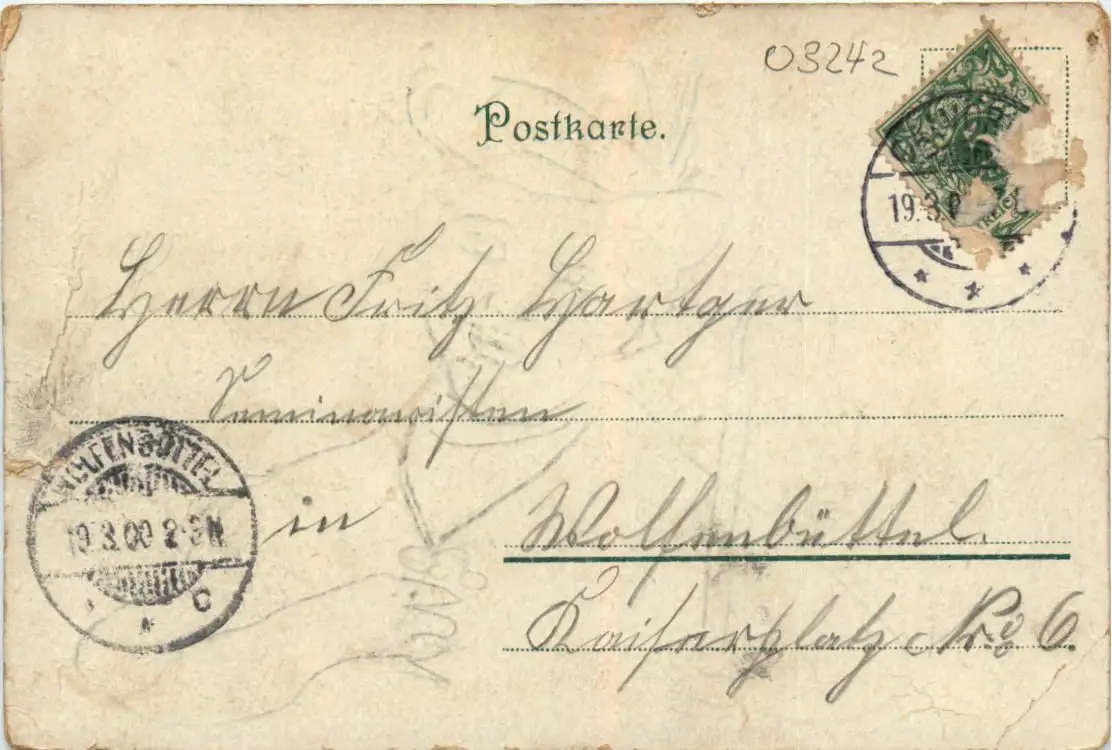 03242
Postkarte.
19.3.0
REICH
Herrn Fritz Hartger
Seminaristen
in Wolfenbüttel.
Kaiserplatz No 6.
WOLFENBÜTTEL
19.3.00 2-3N.
* C